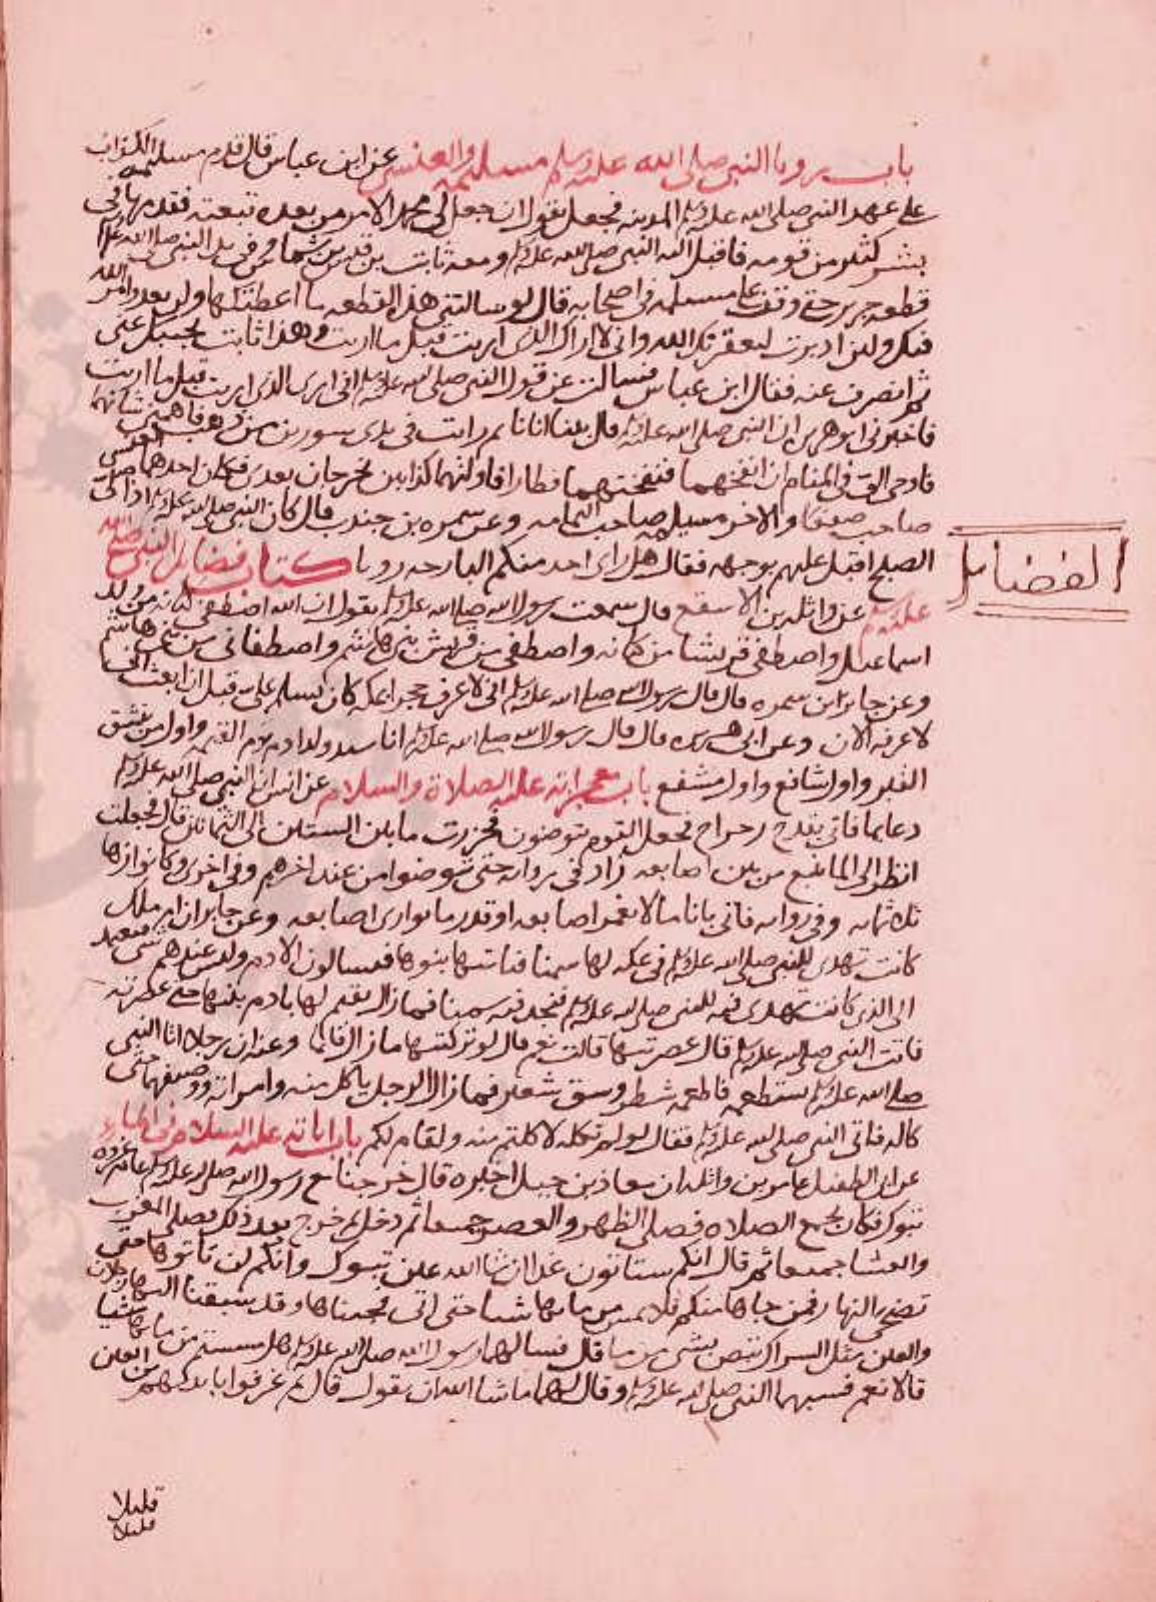 باب رويا النبي صلى الله عليه وسلم مسيلمة والعنسي عن ابن عباس قال قدم مسيلمه الكذاب
على عهد النبي صلى الله عليه وسلم المدينه فجعل يقول ان جعل لي محمد الامر من بعده تبعته فقدمها في
بشر كثير من قومه فاقبل اليه النبي صلى الله عليه وسلم ومعه ثابت بن قيس بن شماس وفي يد النبي صلى الله عليه وسلم
قطعه جريد حتى وقف على مسيلمه في اصحابه قال لو سالتني هذه القطعه ما اعطيتكها ولن يعدو امر الله
فيك ولئن ادبرت ليعقرنك الله واني لا اراك الذي اريت فيك ما اريت وهذا ثابت يجيبك عني
ثم انصرف عنه فقال ابن عباس فسالت عن قول النبي صلى الله عليه وسلم اني ارى الذي اريت فيك ما اريت
فاخبرني ابو هريره ان النبي صلى الله عليه وسلم قال بينا انا نايم رايت في يدي سورين من ذهب فاهمني شانهما
فاوحى الي في المنام ان انفخهما فنفختهما فطارا فاولتهما كذابين يخرجان بعدي فكان احدهما العنسي
صاحب صنعا والاخر مسيلمه صاحب اليمامه وعن سمره بن جندب قال كان النبي صلى الله عليه وسلم اذا صلى
الصبح اقبل عليهم بوجهه فقال هل راى احد منكم البارحه رويا كتاب فضايل النبي صلى الله
الفضايل
عليه وسلم عن واثله بن الاسقع قال سمعت رسول الله صلى الله عليه وسلم يقول ان الله اصطفى كنانه من ولد
اسماعيل واصطفى قريشا من كنانه واصطفى من قريش بني هاشم واصطفاني من بني هاشم
وعن جابر ابن سمره قال قال رسول الله صلى الله عليه وسلم اني لاعرف حجرا بمكه كان يسلم علي قبل ان ابعث اني
لاعرفه الان وعن ابي هريره قال قال رسول الله صلى الله عليه وسلم انا سيد ولد ادم يوم القيمه واول من ينشق
القبر واول شافع واول مشفع باب معجزاته عليه الصلاة والسلام عن انس ان النبي صلى الله عليه وسلم
دعا بما فاتي بقدح رحراح فجعل القوم يتوضون فحزرت ما بين الستين الى الثمانين قال فجعلت
انظر الى الما ينبع من بين اصابعه زاد في روايه حتى توضوا من عند اخرهم وفي اخرى وكانوا زها
ثلاثمايه وفي روايه فاتي بانا ما لا يغمر اصابعه او قدر ما يوارى اصابعه وعن جابر ان ام ملك
كانت تهدي للنبي صلى الله عليه وسلم في عكه لها سمنا فياتيها بنوها فيسالون الادم وليس عندهم شي فتعمد
الى الذي كانت تهدي فيه للنبي صلى الله عليه وسلم فتجد فيه سمنا فما زال يقيم لها ادم بيتها حتى عصرته
فاتت النبي صلى الله عليه وسلم قال عصرتيها قالت نعم قال لو تركتيها ما زال قايما وعنه ان رجلا اتا النبي
صلى الله عليه وسلم يستطعمه فاطعمه شطر وسق شعير فما زال الرجل ياكل منه وامراته وضيفهما حتى
كاله فاتى النبي صلى الله عليه وسلم فقال لو لم تكله لاكلتم منه ولقام لكم باب اياته عليه السلام في الماء
عن ابي الطفيل عامر بن واثله ان معاذ بن جبل اخبره قال خرجنا مع رسول الله صلى الله عليه وسلم عام غزوه
تبوك فكان يجمع الصلاه فصلى الظهر والعصر جميعا ثم دخل ثم خرج بعد ذلك فصلى المغرب
والعشا جميعا ثم قال انكم ستاتون غدا ان شا الله عين تبوك وانكم لن تاتوها حتى
تضحي النهار فمن جاها منكم فلا يمس من مايها شيا حتى اتي فجيناها وقد سبقنا اليها رجلان
والعين مثل الشراك تبض بشي من ما قال فسالهما رسول الله صلى الله عليه وسلم هل مسستم من مايها شيا
قالا نعم فسبهما النبي صلى الله عليه وسلم وقال لهما ما شا الله ان يقول قال ثم غرفوا بايديهم من العين
قليلا
قليلا